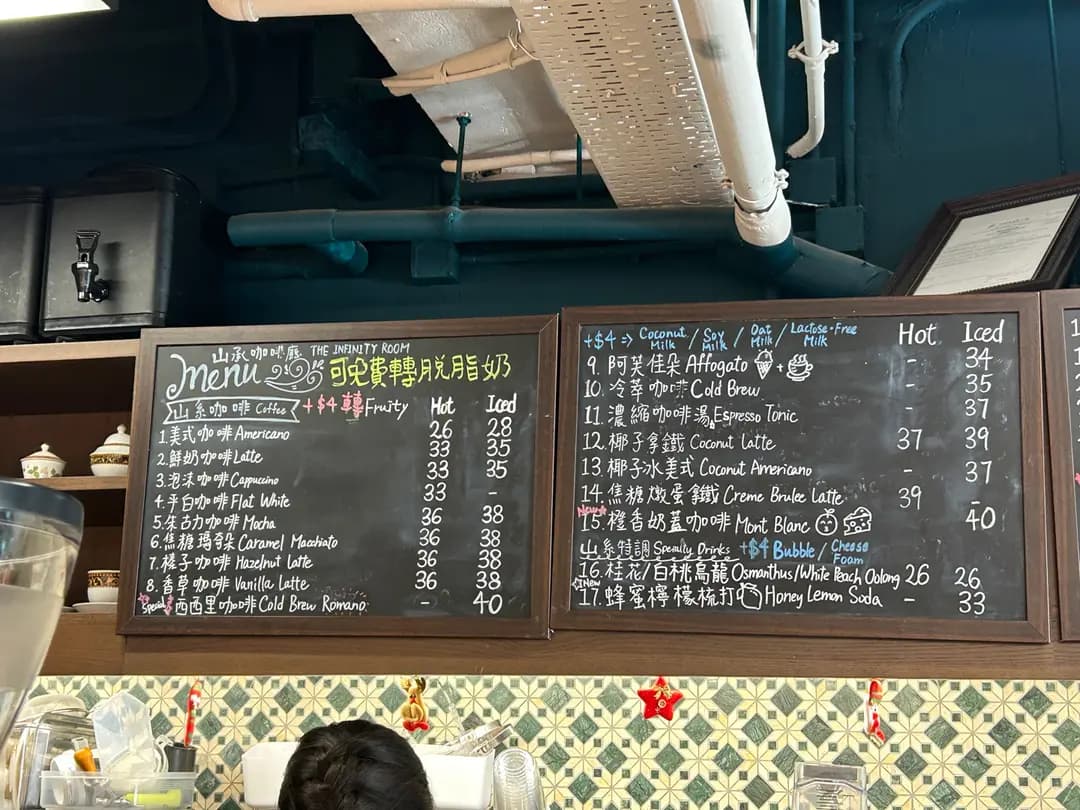 山承咖啡廳 THE INFINITY ROOM
Menu 可免費轉脫脂奶
山系咖啡 Coffee +$4 轉 Fruity Hot Iced
1.美式咖啡 Americano 26 28
2.鮮奶咖啡 Latte 33 35
3.泡沫咖啡 Cappuccino 33 35
4.平白咖啡 Flat White 33 -
5.朱古力咖啡 Mocha 36 38
6.焦糖瑪奇朵 Caramel Macchiato 36 38
7.榛子咖啡 Hazelnut Latte 36 38
8.香草咖啡 Vanilla Latte 36 38
Special 西西里咖啡 Cold Brew Romano - 40
+$4 → Coconut Milk / Soy Milk / Oat Milk / Lactose-Free Milk Hot Iced
9. 阿芙佳朵 Affogato + - 34
10. 冷萃咖啡 Cold Brew - 35
11. 濃縮咖啡湯 Espresso Tonic - 37
12. 椰子拿鐵 Coconut Latte 37 39
13. 椰子冰美式 Coconut Americano - 37
14. 焦糖燉蛋拿鐵 Creme Brulee Latte 39 -
New 15. 橙香奶蓋咖啡 Mont Blanc 40
山系特調 Specialty Drinks +$4 Bubble / Cheese Foam
16. 桂花/白桃烏龍 Osmanthus/White Peach Oolong 26 26
New 17. 蜂蜜檸檬梳打 Honey Lemon Soda - 33